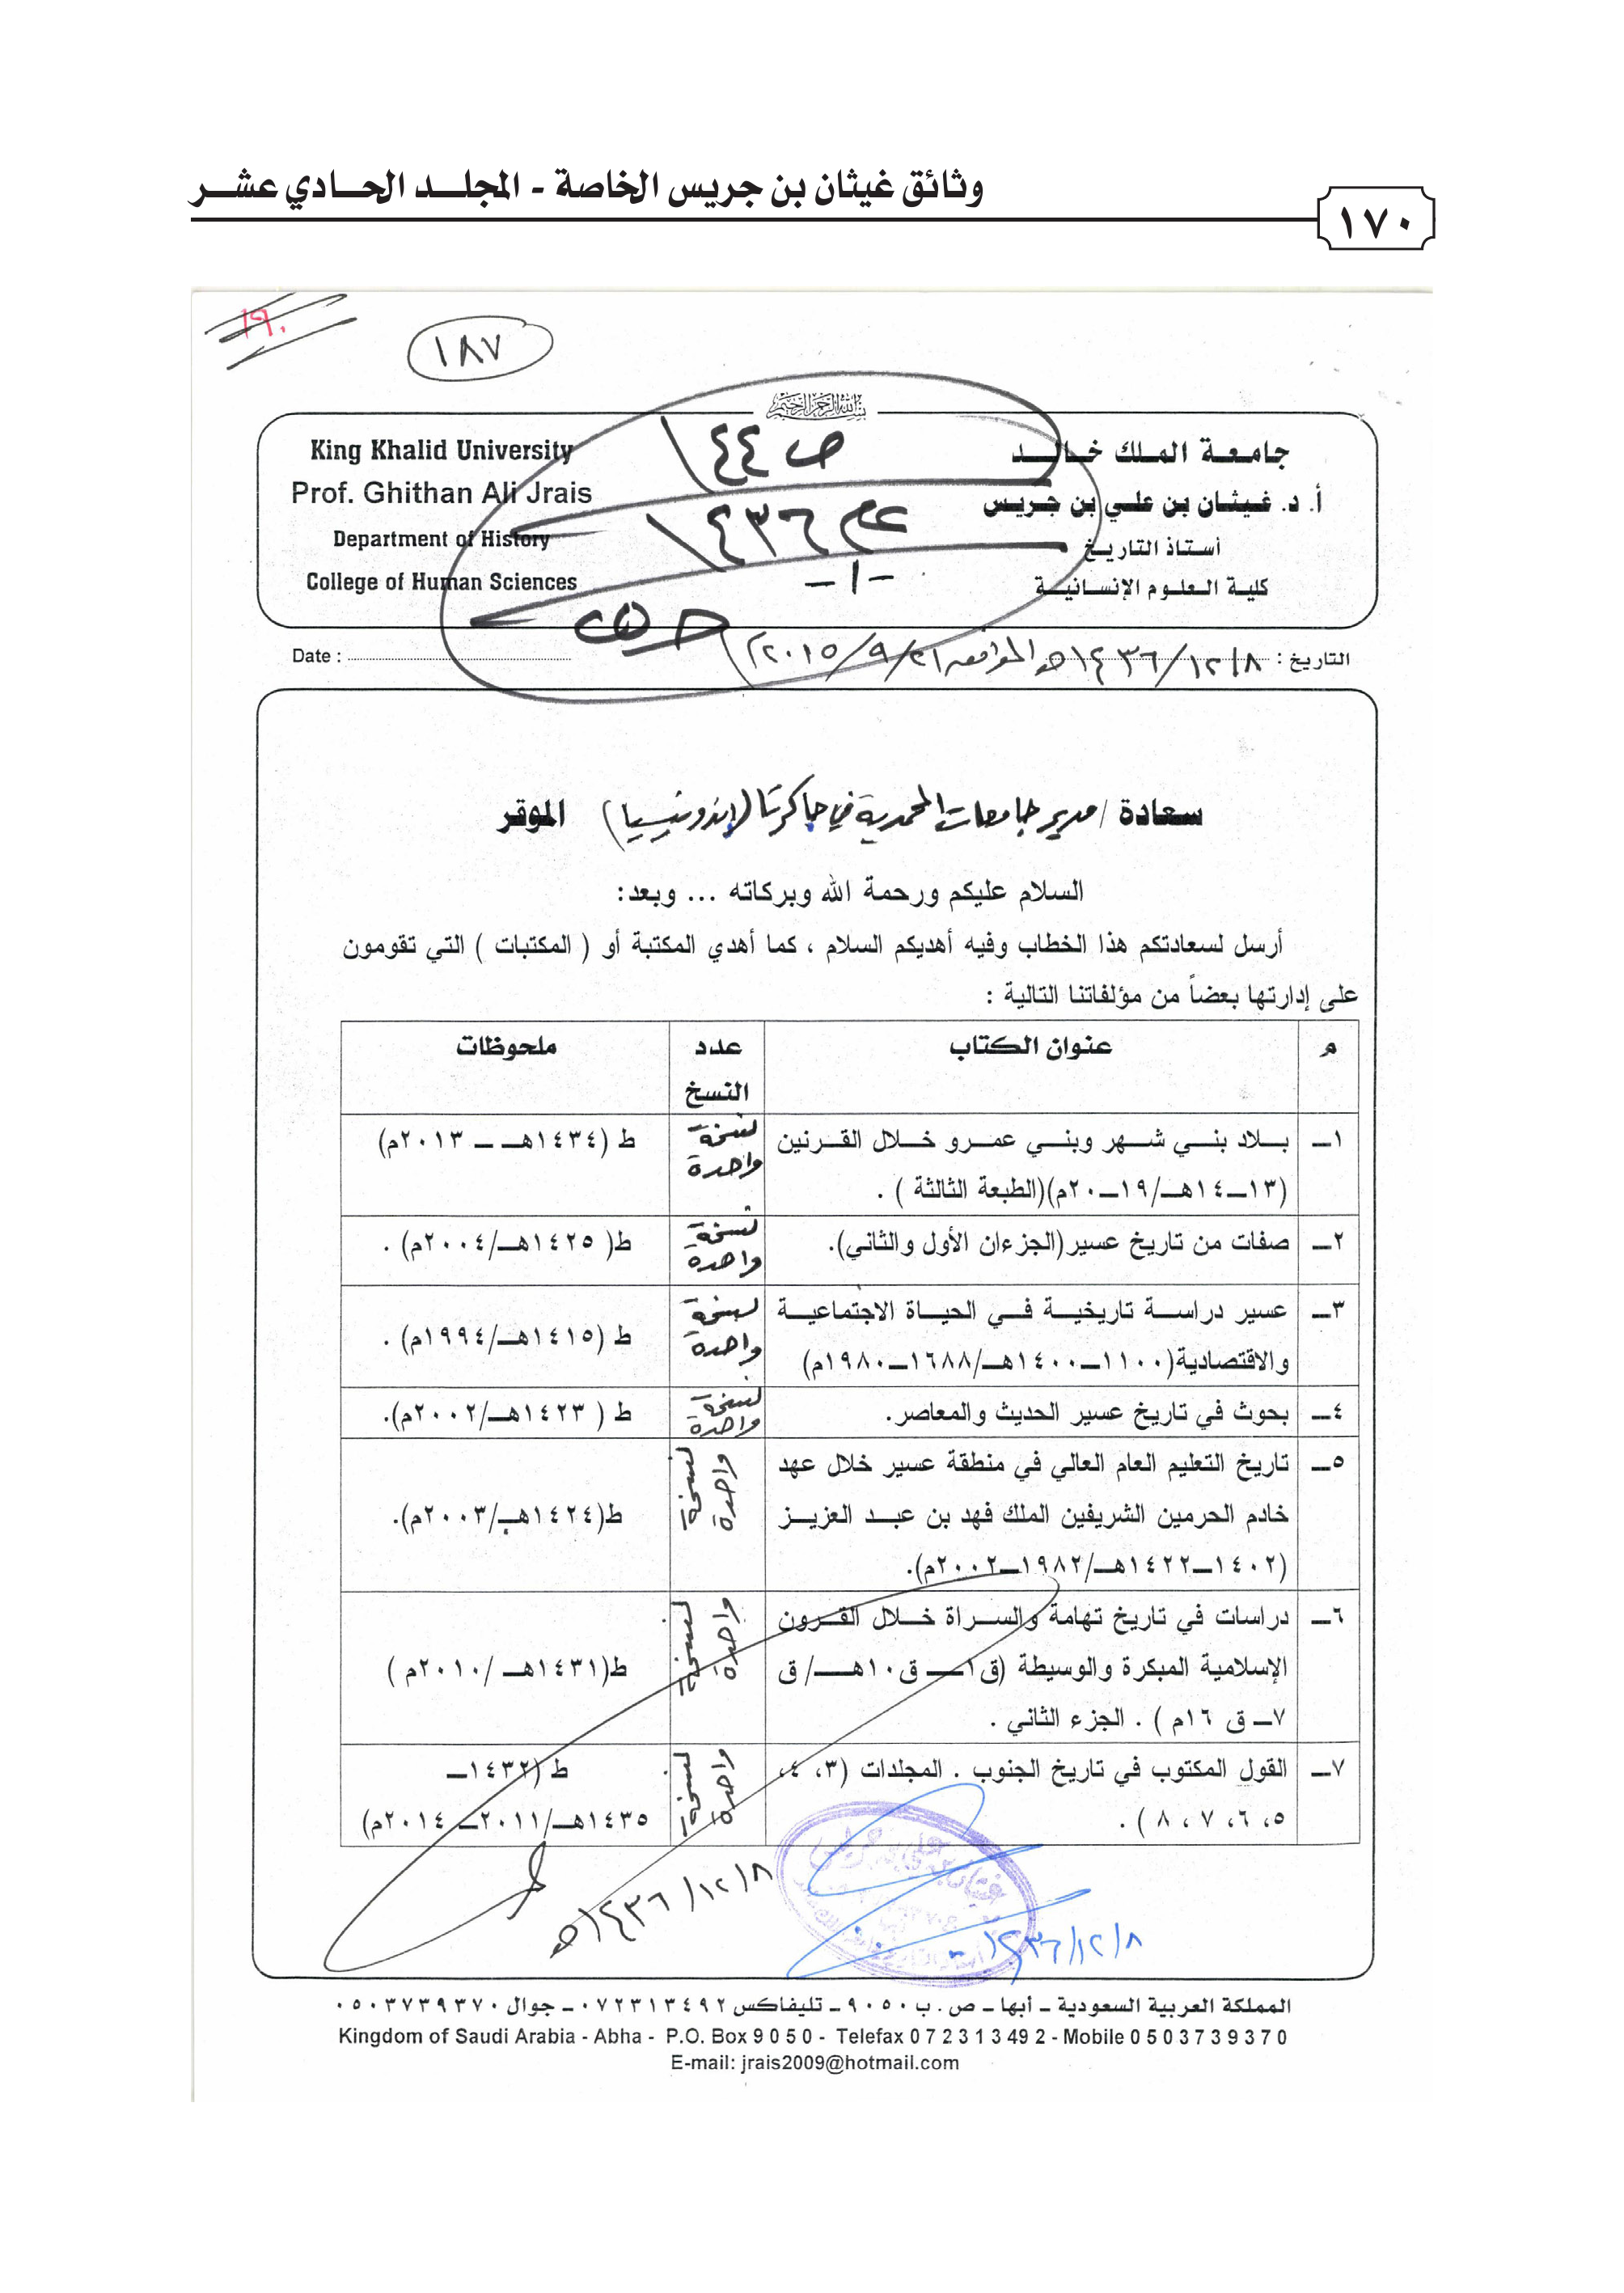 وثائق غيثان بن جريس الخاصة - المجلد الحادي عشر
١٧٠
١٨٧
بسم الله الرحمن الرحيم
جامعة الملك خالد
أ. د. غيثان بن علي بن جريس
أستاذ التاريخ
كلية العلوم الإنسانية
King Khalid University
Prof. Ghithan Ali Jrais
Department of History
College of Human Sciences
ص ١٤٤
عام ١٤٣٦
-١-
التاريخ : ١٤٣٦/١٢/٨هـ الموافق ٢٠١٥/٩/٢١
Date :
سعادة / مدير جامعات المحمدية في جاكرتا (إندونيسيا) الموقر
السلام عليكم ورحمة الله وبركاته ... وبعد:
أرسل لسعادتكم هذا الخطاب وفيه أهديكم السلام ، كما أهدي المكتبة أو ( المكتبات ) التي تقومون
على إدارتها بعضاً من مؤلفاتنا التالية :
م عنوان الكتاب عدد النسخ ملحوظات
١ـ بلاد بني شهر وبني عمرو خلال القرنين نسخة واحدة ط (١٤٣٤هـ ـ ٢٠١٣م)
(١٣ـ١٤هـ/١٩ـ٢٠م)(الطبعة الثالثة ) .
٢ـ صفات من تاريخ عسير(الجزءان الأول والثاني). نسخة واحدة ط( ١٤٢٥هـ/٢٠٠٤م) .
٣ـ عسير دراسة تاريخية في الحياة الاجتماعية نسخة واحدة ط (١٤١٥هـ/١٩٩٤م) .
والاقتصادية(١١٠٠ـ١٤٠٠هـ/١٦٨٨ـ١٩٨٠م)
٤ـ بحوث في تاريخ عسير الحديث والمعاصر. نسخة واحدة ط ( ١٤٢٣هـ/٢٠٠٢م).
٥ـ تاريخ التعليم العام العالي في منطقة عسير خلال عهد
خادم الحرمين الشريفين الملك فهد بن عبد العزيز نسخة واحدة ط(١٤٢٤هـ/٢٠٠٣م).
(١٤٠٢ـ١٤٢٢هـ/١٩٨٢ـ٢٠٠٢م).
٦ـ دراسات في تاريخ تهامة والسراة خلال القرون
الإسلامية المبكرة والوسيطة (ق١ـ ق١٠هـ/ ق نسخة واحدة ط(١٤٣١هـ /٢٠١٠م )
٧ـ ق ١٦م ) . الجزء الثاني .
٧ـ القول المكتوب في تاريخ الجنوب . المجلدات (٣، ٤، نسخة واحدة ط (١٤٣٢ـ
٥، ٦، ٧ ، ٨ ) . ١٤٣٥هـ/٢٠١١ـ ٢٠١٤م)
١٤٣٦/١٢/٨هـ
١٤٣٦/١٢/٨
المملكة العربية السعودية ـ أبها ـ ص . ب ٩٠٥٠ ـ تليفاكس ٠٧٢٣١٣٤٩٢ ـ جوال ٠٥٠٣٧٣٩٣٧٠
Kingdom of Saudi Arabia - Abha - P.O. Box 9 0 5 0 - Telefax 0 7 2 3 1 3 49 2 - Mobile 0 5 0 3 7 3 9 3 7 0
E-mail: jrais2009@hotmail.com